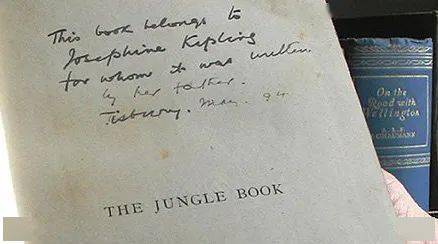 This book belongs to
Josephine Kipling
for whom it was written
by her father.
Tisbury. May. 94.
THE JUNGLE BOOK
On the
Road with
Wellington
SCHAUMANN